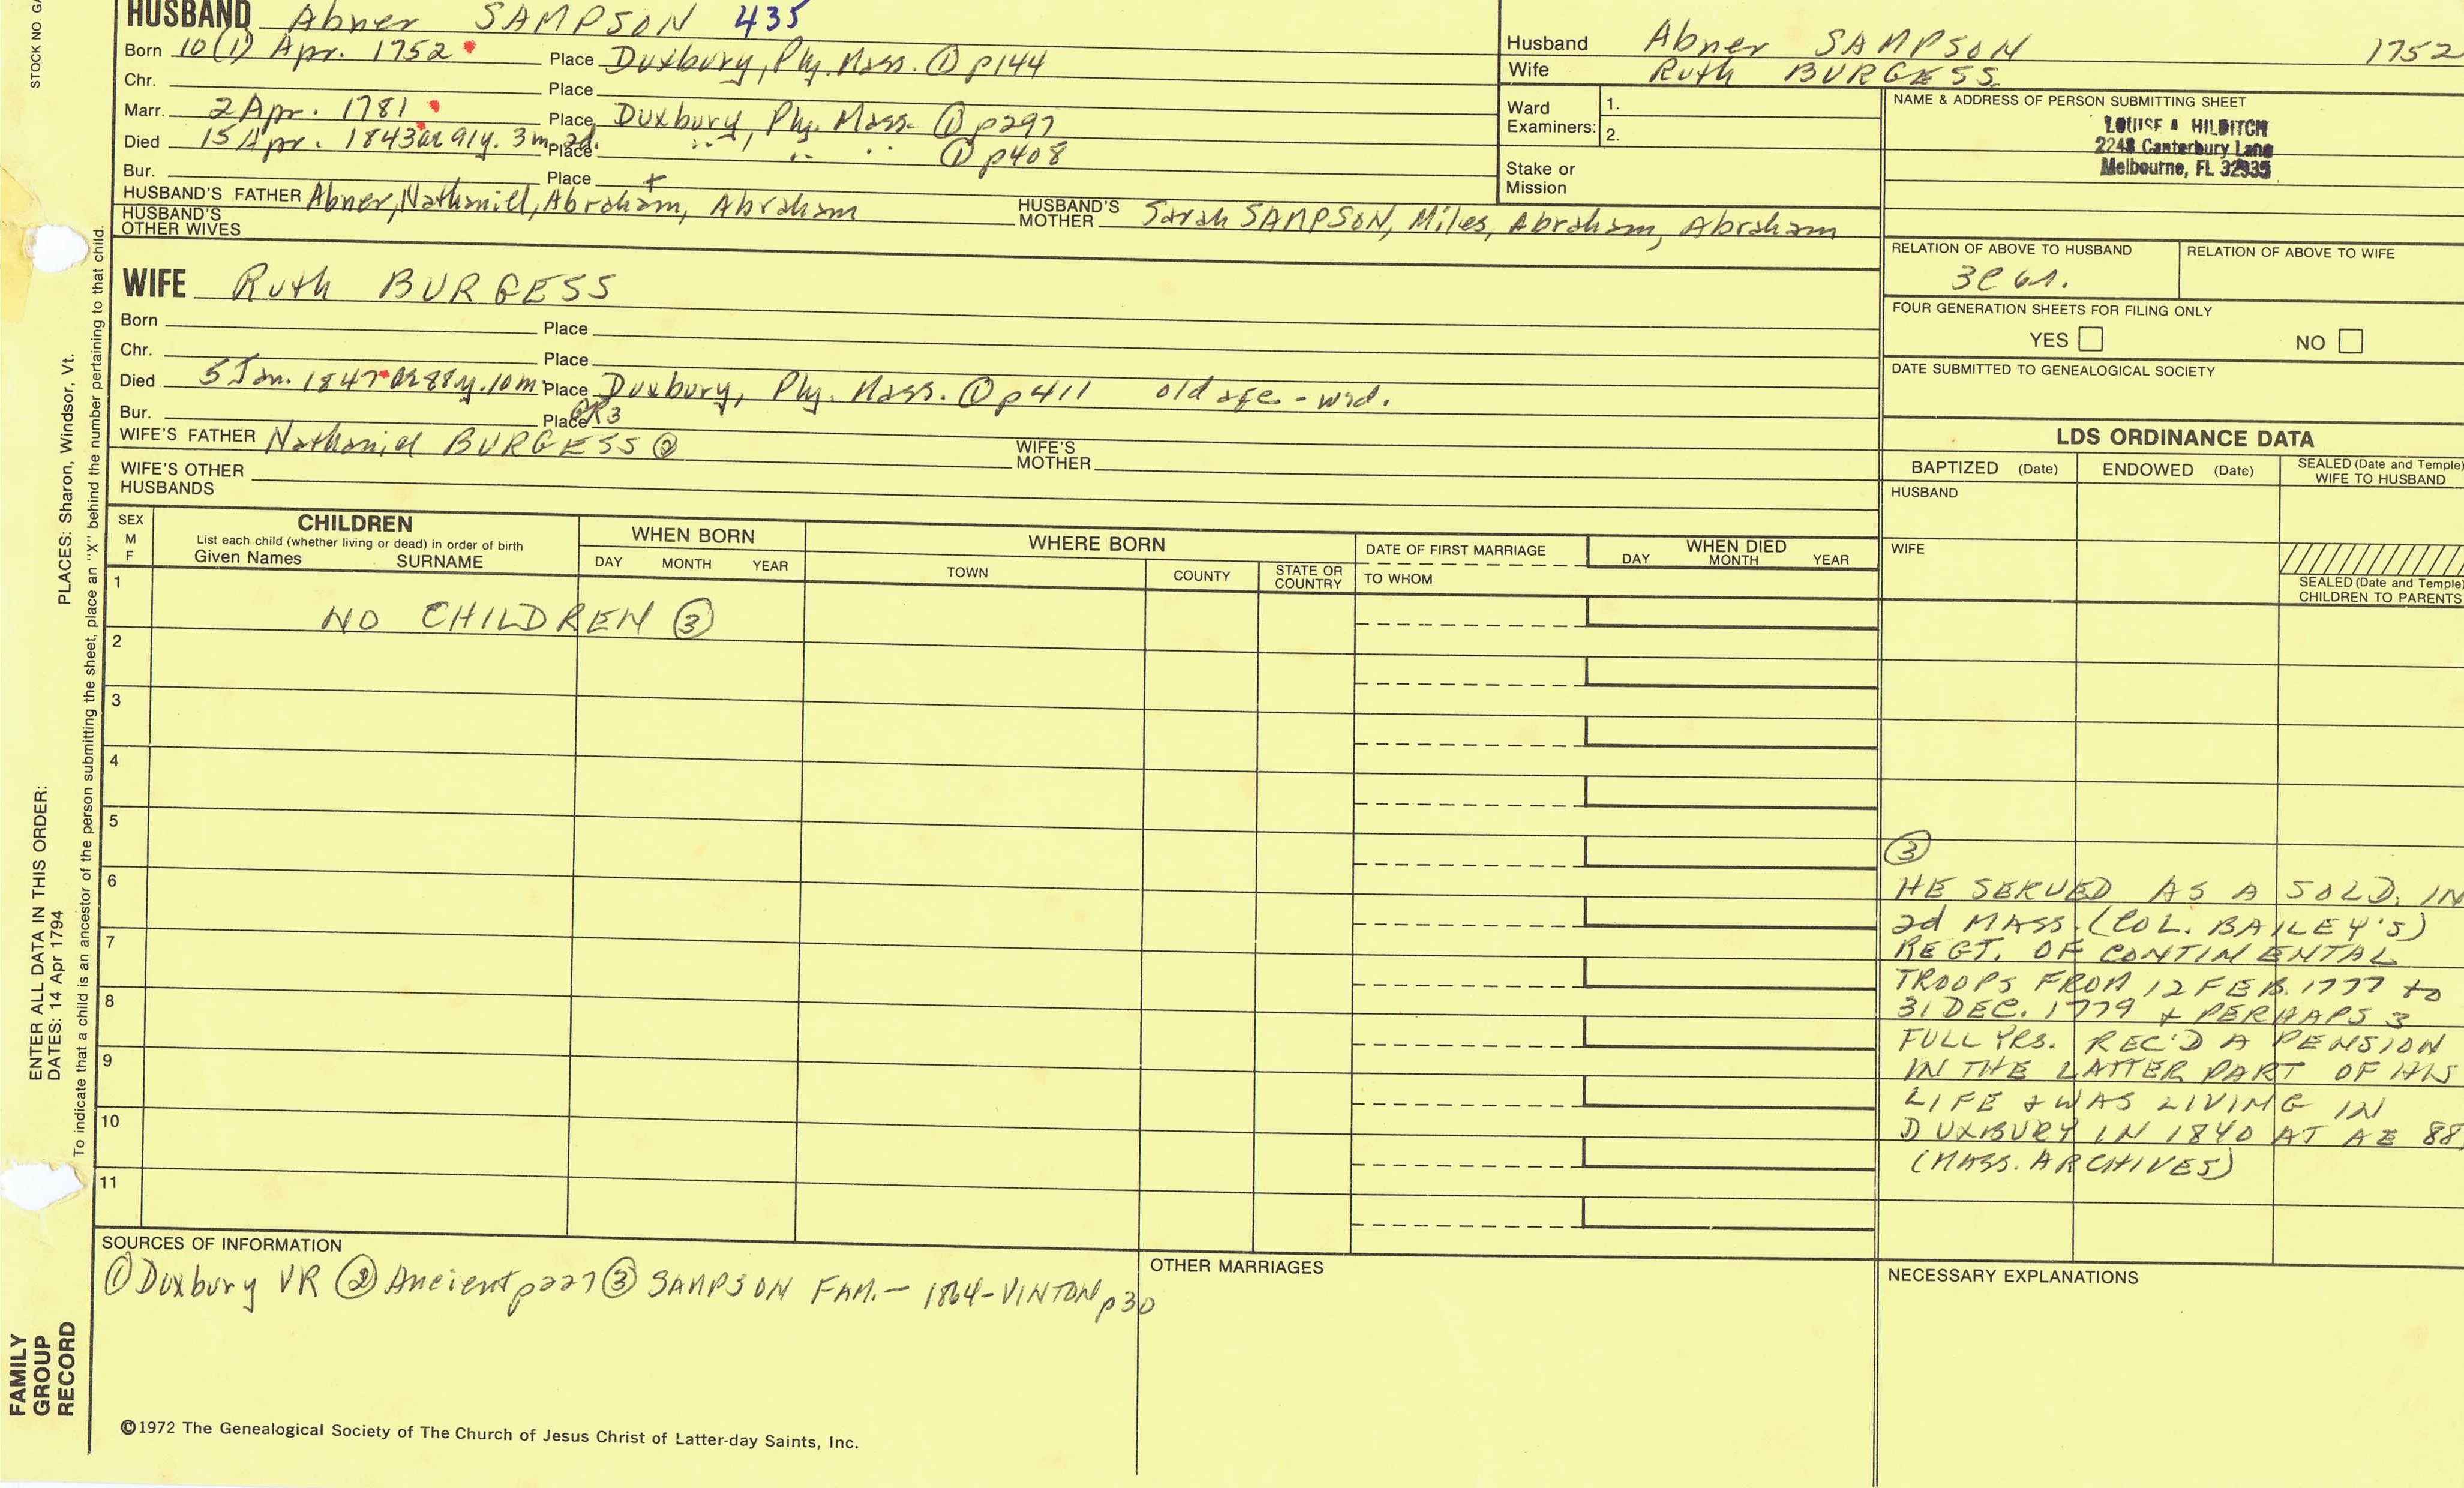 STOCK NO. GA
HUSBAND Abner SAMPSON 435
Born 10(1) Apr. 1752 Place Duxbury, Ply. Mass. ① p144
Chr. Place
Marr. 2 Apr. 1781 Place Duxbury, Ply. Mass. ① p297
Died 15 Apr. 1843 ae 91y. 3m. 2d. Place " " " ① p408
Bur. Place
HUSBAND'S FATHER Abner, Nathaniel, Abraham, Abraham HUSBAND'S MOTHER Sarah SAMPSON, Miles, Abraham, Abraham
HUSBAND'S OTHER WIVES
Husband Abner SAMPSON 1752
Wife Ruth BURGESS
Ward Examiners: 1.
2.
Stake or Mission
NAME & ADDRESS OF PERSON SUBMITTING SHEET
LOUISE A HILDITCH
2248 Canterbury Lane
Melbourne, FL 32935
RELATION OF ABOVE TO HUSBAND RELATION OF ABOVE TO WIFE
FOUR GENERATION SHEETS FOR FILING ONLY
YES NO
DATE SUBMITTED TO GENEALOGICAL SOCIETY
WIFE Ruth BURGESS
Born Place
Chr. Place
Died 5 Jan. 1847 ae 88y. 10m Place Duxbury, Ply. Mass. ① p411 old age - wid.
Bur. Place GR3
WIFE'S FATHER Nathaniel BURGESS ② WIFE'S MOTHER
WIFE'S OTHER HUSBANDS
LDS ORDINANCE DATA
BAPTIZED (Date) ENDOWED (Date) SEALED (Date and Temple) WIFE TO HUSBAND
HUSBAND
WIFE
SEALED (Date and Temple) CHILDREN TO PARENTS
SEX M F
CHILDREN
List each child (whether living or dead) in order of birth
Given Names SURNAME
WHEN BORN
DAY MONTH YEAR
WHERE BORN
TOWN COUNTY STATE OR COUNTRY
DATE OF FIRST MARRIAGE
TO WHOM
WHEN DIED
DAY MONTH YEAR
1
NO CHILDREN ③
2
3
4
5
6
7
8
9
10
11
③
HE SERVED AS A SOLD. IN
2d MASS. (COL. BAILEY'S)
REGT. OF CONTINENTAL
TROOPS FROM 12 FEB. 1777 to
31 DEC. 1779 + PERHAPS 3
FULL YRS. REC'D A PENSION
IN THE LATTER PART OF HIS
LIFE & WAS LIVING IN
DUXBURY IN 1840 AT AE 88
(MASS. ARCHIVES)
SOURCES OF INFORMATION
① Duxbury VR ② Ancient p227 ③ SAMPSON FAM. - 1864 - VINTON p30
OTHER MARRIAGES
NECESSARY EXPLANATIONS
©1972 The Genealogical Society of The Church of Jesus Christ of Latter-day Saints, Inc.
FAMILY
GROUP
RECORD
ENTER ALL DATA IN THIS ORDER:
DATES: 14 Apr 1794
PLACES: Sharon, Windsor, Vt.
To indicate that a child is an ancestor of the person submitting the sheet, place an "X" behind the number pertaining to that child.